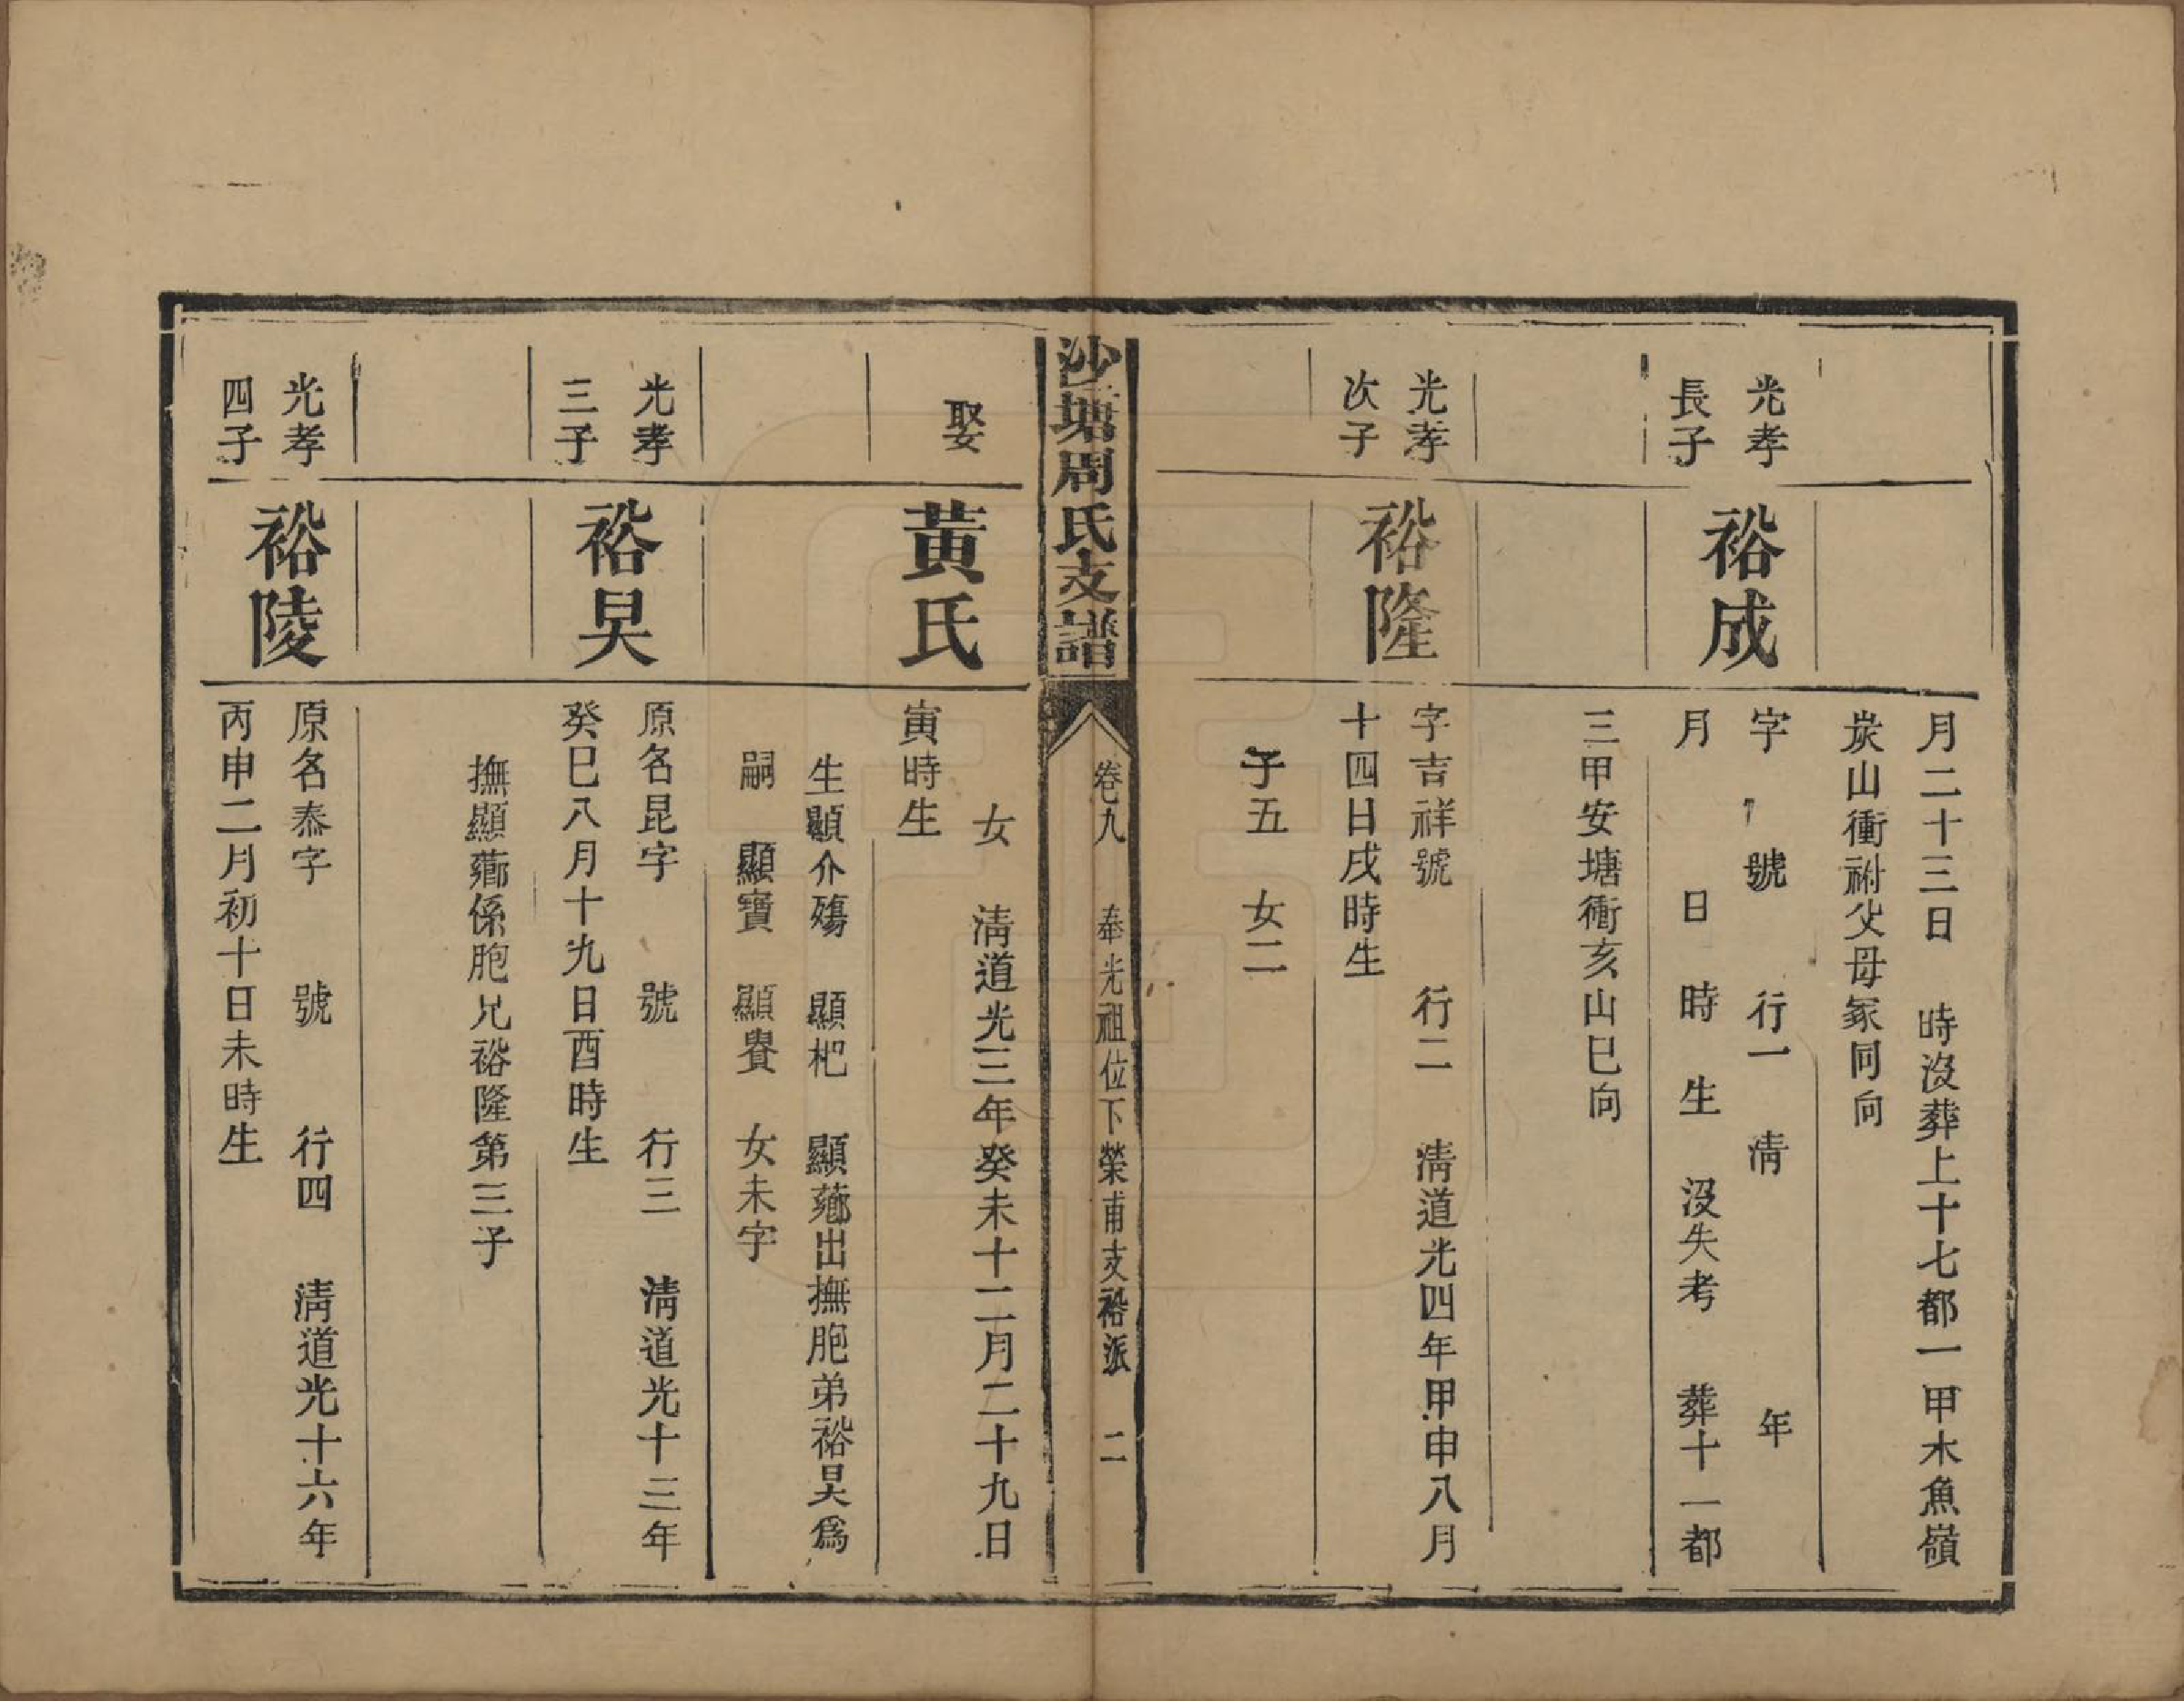 月二十三日　時沒葬上十七都一甲木魚嶺
炭山衝祔父母冢同向
光孝
長子
裕成
字　號　行一　清　年
月　日　時　生　沒失考　葬十一都
三甲安塘衝亥山巳向
光孝
次子
裕隆
字吉祥號　行二　清道光四年甲申八月
十四日戌時生
子五　女二
沙塘周氏支譜
卷九　奉光祖位下榮甫支裕派　二
娶
黃氏
女　清道光三年癸未十二月二十九日
寅時生
生顯介殤　顯杷　顯薌出撫胞弟裕昊爲
嗣　顯寶　顯賚　女未字
光孝
三子
裕昊
原名昆字　號　行三　清道光十三年
癸巳八月十九日酉時生
撫顯薌係胞兄裕隆第三子
光孝
四子
裕陵
原名泰字　號　行四　清道光十六年
丙申二月初十日未時生